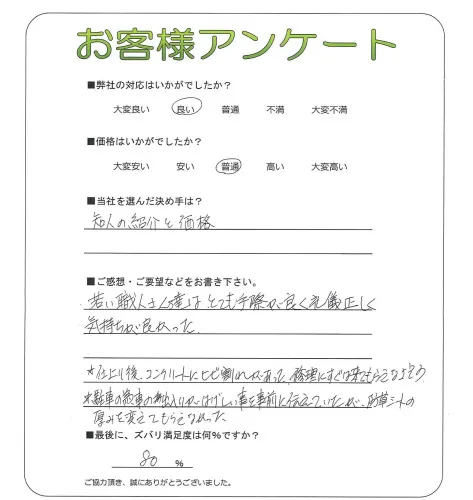 お客様アンケート
■弊社の対応はいかがでしたか?
大変良い 良い 普通 不満 大変不満
■価格はいかがでしたか?
大変安い 安い 普通 高い 大変高い
■当社を選んだ決め手は?
知人の紹介と価格
■ご感想・ご要望などをお書き下さい。
若い職人さん達はとても手際が良く礼儀正しく
気持ちが良かった.
*仕上り後、コンクリートにヒビ割れがあった、修理にすぐは来てもらえな
車の出入りがはげしい事を事前に伝えていたが、防草シートの
厚みを変えてもらえなかった。
■最後に、ズバリ満足度は何%ですか?
80 %
ご協力頂き、誠にありがとうございました。